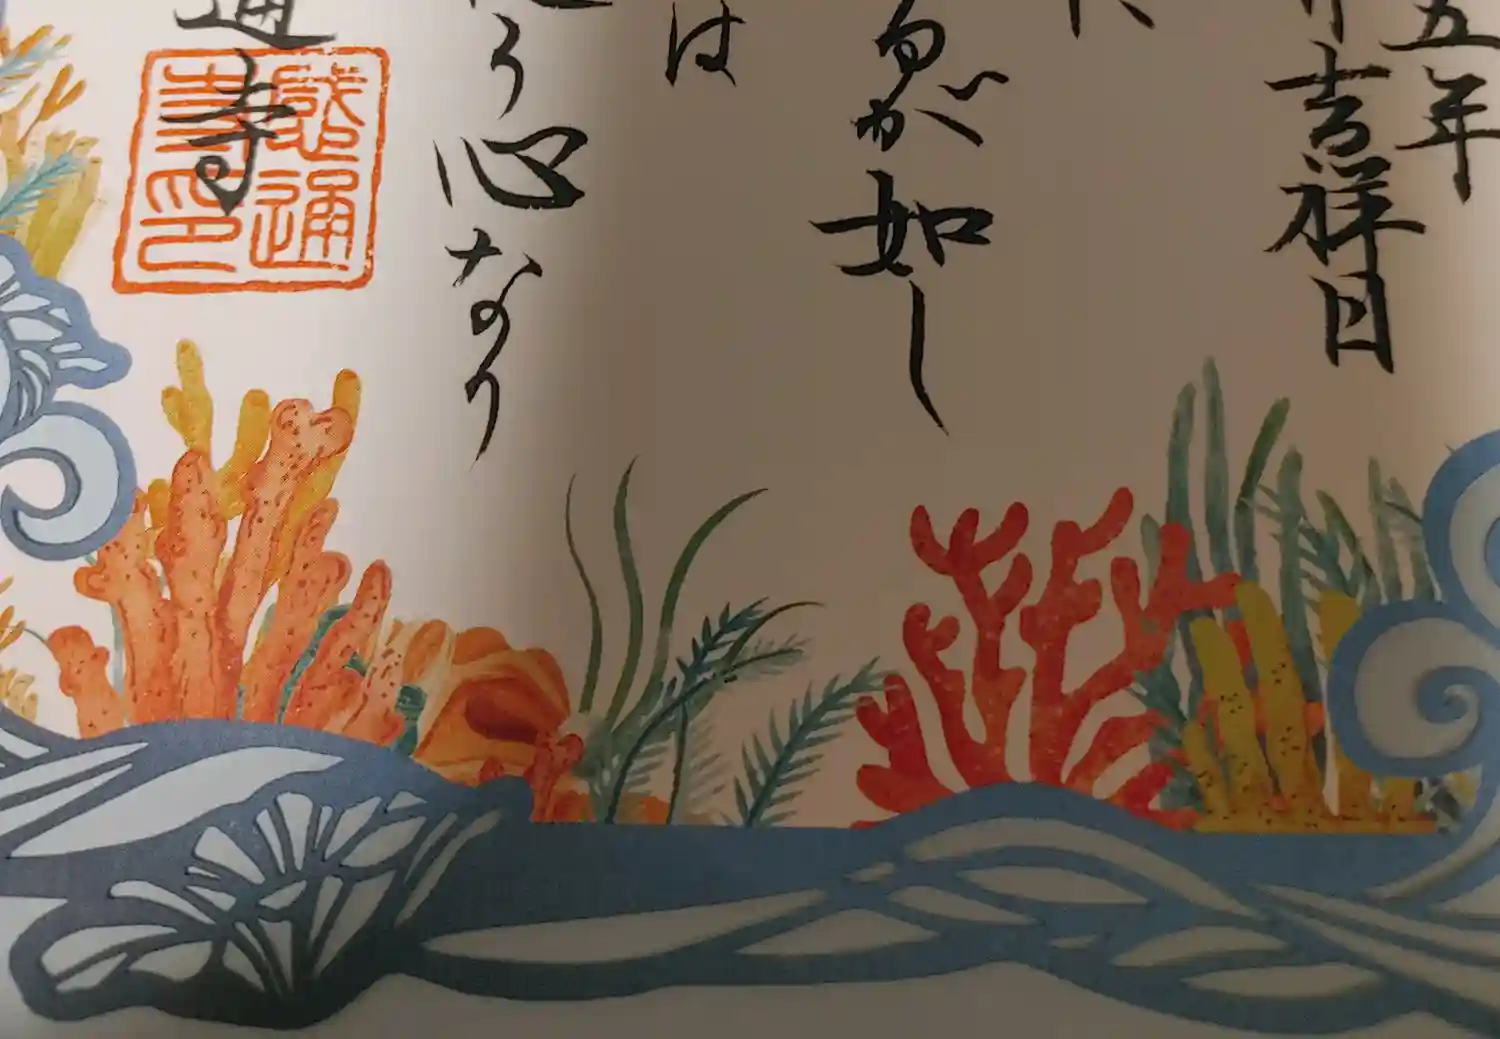 五年
吉祥日
が如し
は
う心なり
通寺
感通
寺印